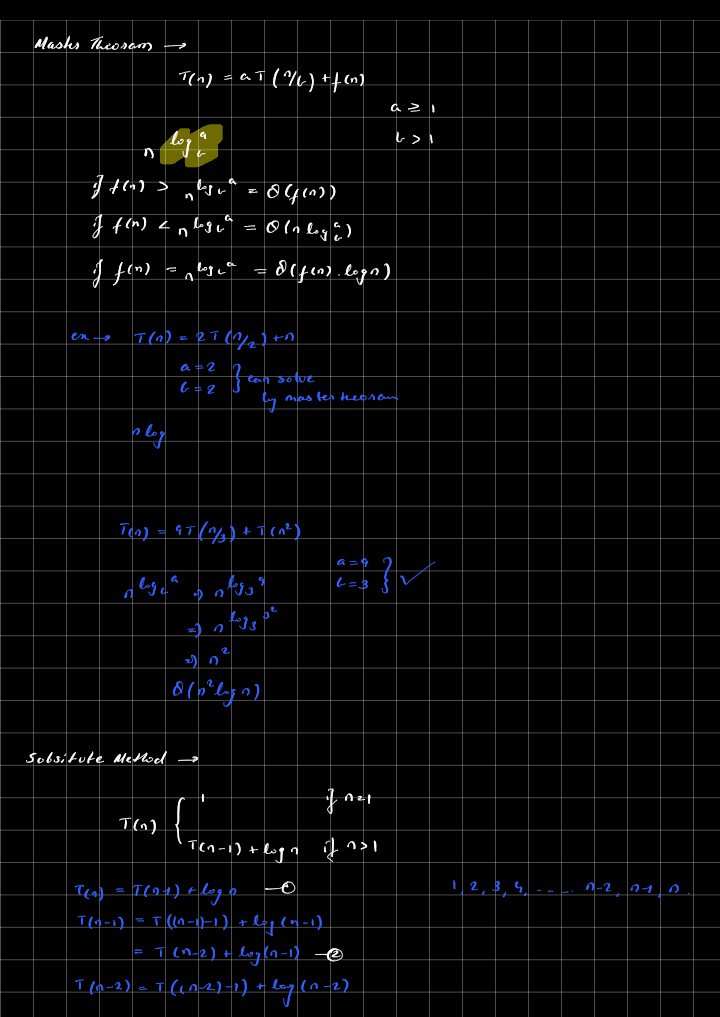 Master Theoram →
T(n) = aT(n/b) + f(n)
a ≥ 1
b > 1
n log_b^a
if f(n) > n^log_b^a = θ(f(n))
if f(n) < n^log_b^a = θ(n log_b^a)
if f(n) = n^log_b^a = θ(f(n) . log n)
ex → T(n) = 2T(n/2) + n
a = 2
b = 2 } can solve
by master theoram
n log
T(n) = 9T(n/3) + T(n²)
a = 9
b = 3 } ✓
n^log_b^a ⇒ n^log_3^9
⇒ n^log_3^3²
⇒ n²
θ(n² log n)
Sobsitute Method →
T(n) { 1 if n=1
T(n-1) + log n if n>1
T(n) = T(n-1) + log n —①
1, 2, 3, 4, ---- n-2, n-1, n.
T(n-1) = T((n-1)-1) + log(n-1)
= T(n-2) + log(n-1) —②
T(n-2) = T((n-2)-1) + log(n-2)